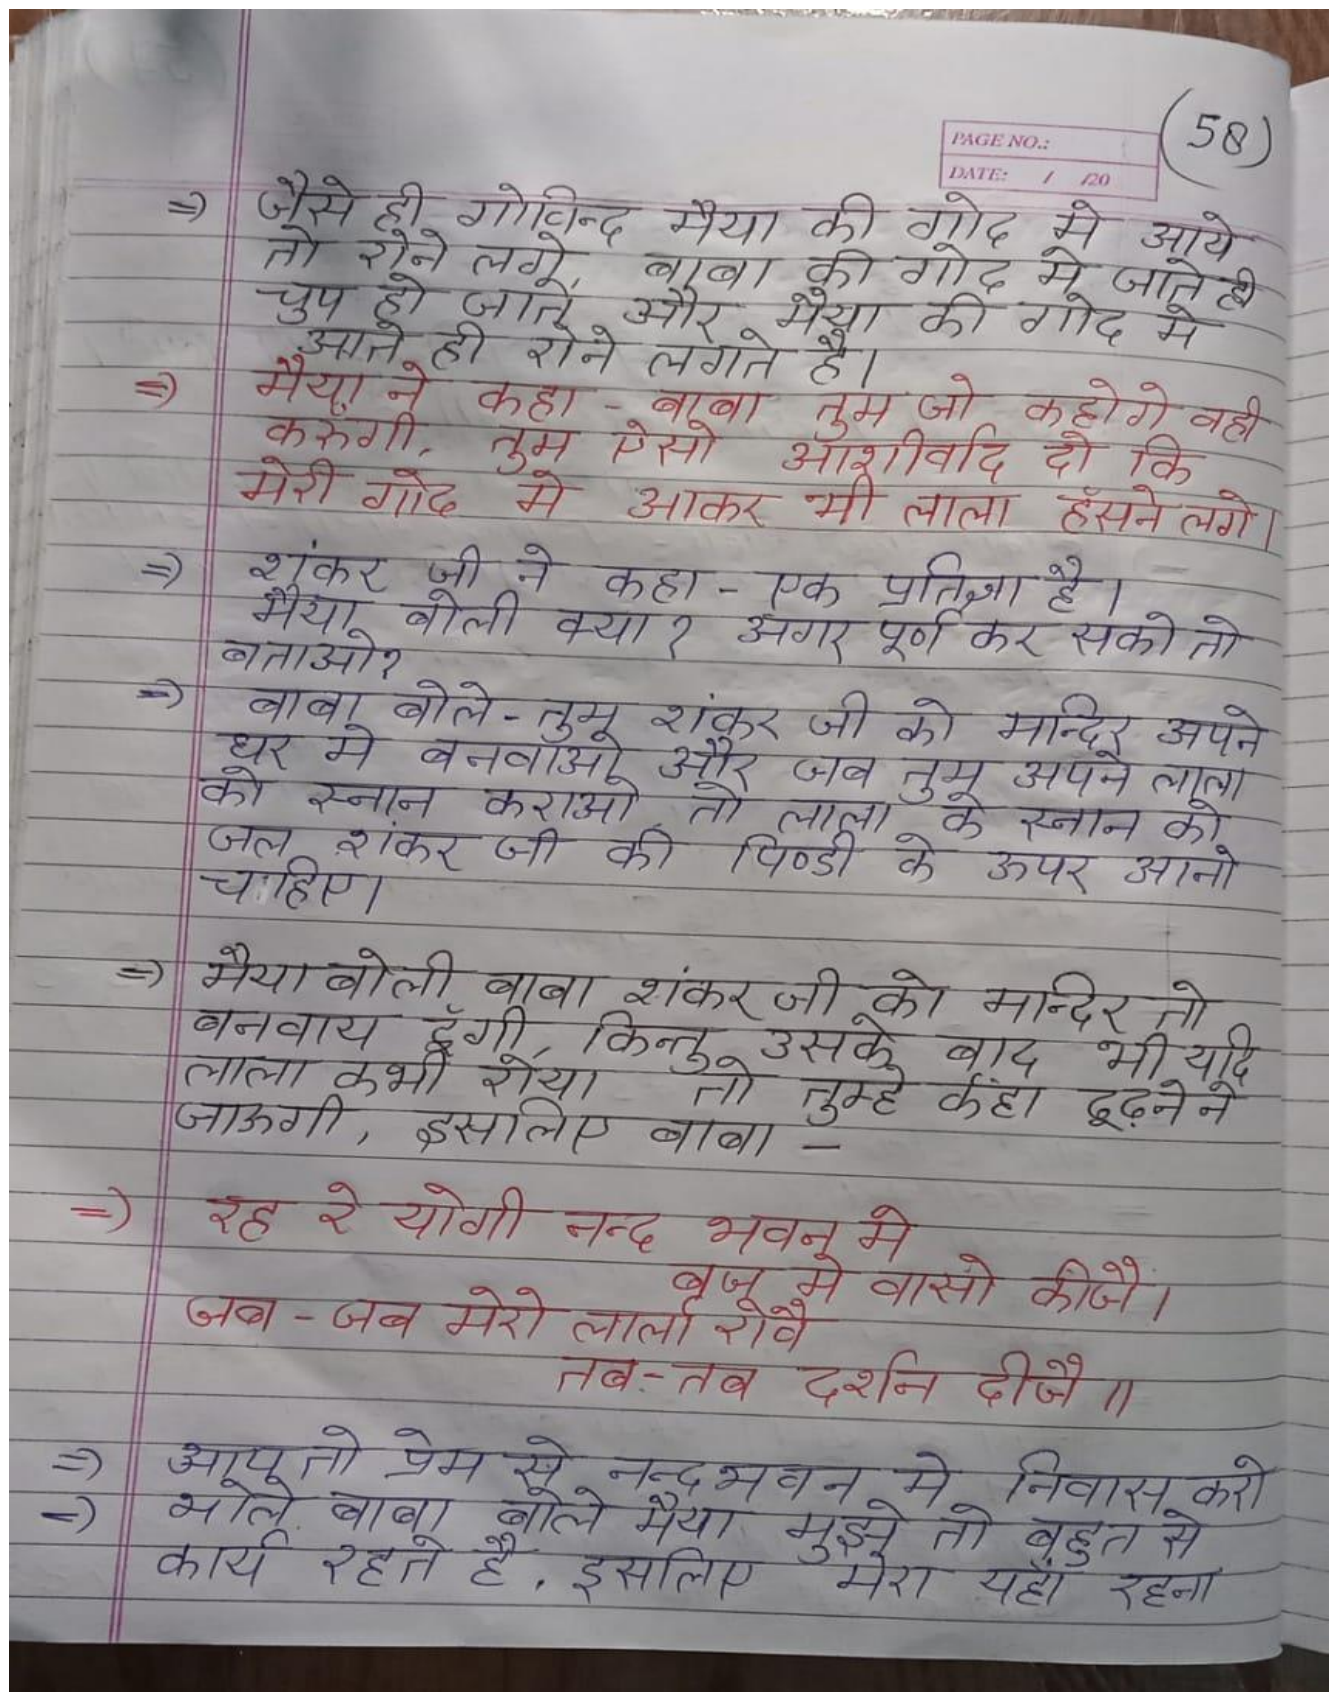 (58)
PAGE NO.:
DATE: / /20
=> जैसे ही गोविन्द मैया की गोद मे आये
तो रोने लगे, बाबा की गोद मे जाते ही
चुप हो जाते और मैया की गोद मे
आते ही रोने लगते है।
=> मैया ने कहा - बाबा तुम जो कहोगे वही
करुंगी, तुम ऐसो आशीर्वाद दो कि
मेरी गोद मे आकर भी लाला हँसने लगे।
=> शंकर जी ने कहा - एक प्रतिज्ञा है।
मैया बोली क्या? अगर पूर्ण कर सको तो
बताओ?
=> बाबा बोले - तुम शंकर जी को मान्दिर अपने
घर मे बनवाओ और जब तुम अपने लाला
को स्नान कराओ तो लाला के स्नान को
जल शंकर जी की पिण्डी के ऊपर आनो
चाहिए।
=> मैया बोली बाबा शंकर जी को मान्दिर तो
बनवाय दूँगी, किन्तु उसके बाद भी यदि
लाला कभी रोया तो तुम्हे कंहा ढूढ़ने ने
जाऊगी, इसलिए बाबा -
=> रह रे योगी नन्द भवन मे
बृज मे वासो कीजै।
जब - जब मेरो लाला रोवै
तब - तब दर्शन दीजै॥
=> आप तो प्रेम से नन्दभवन मे निवास करो
=> भोले बाबा बोले मैया मुझे तो बहुत से
कार्य रहते है, इसलिए मेरा यहाँ रहना